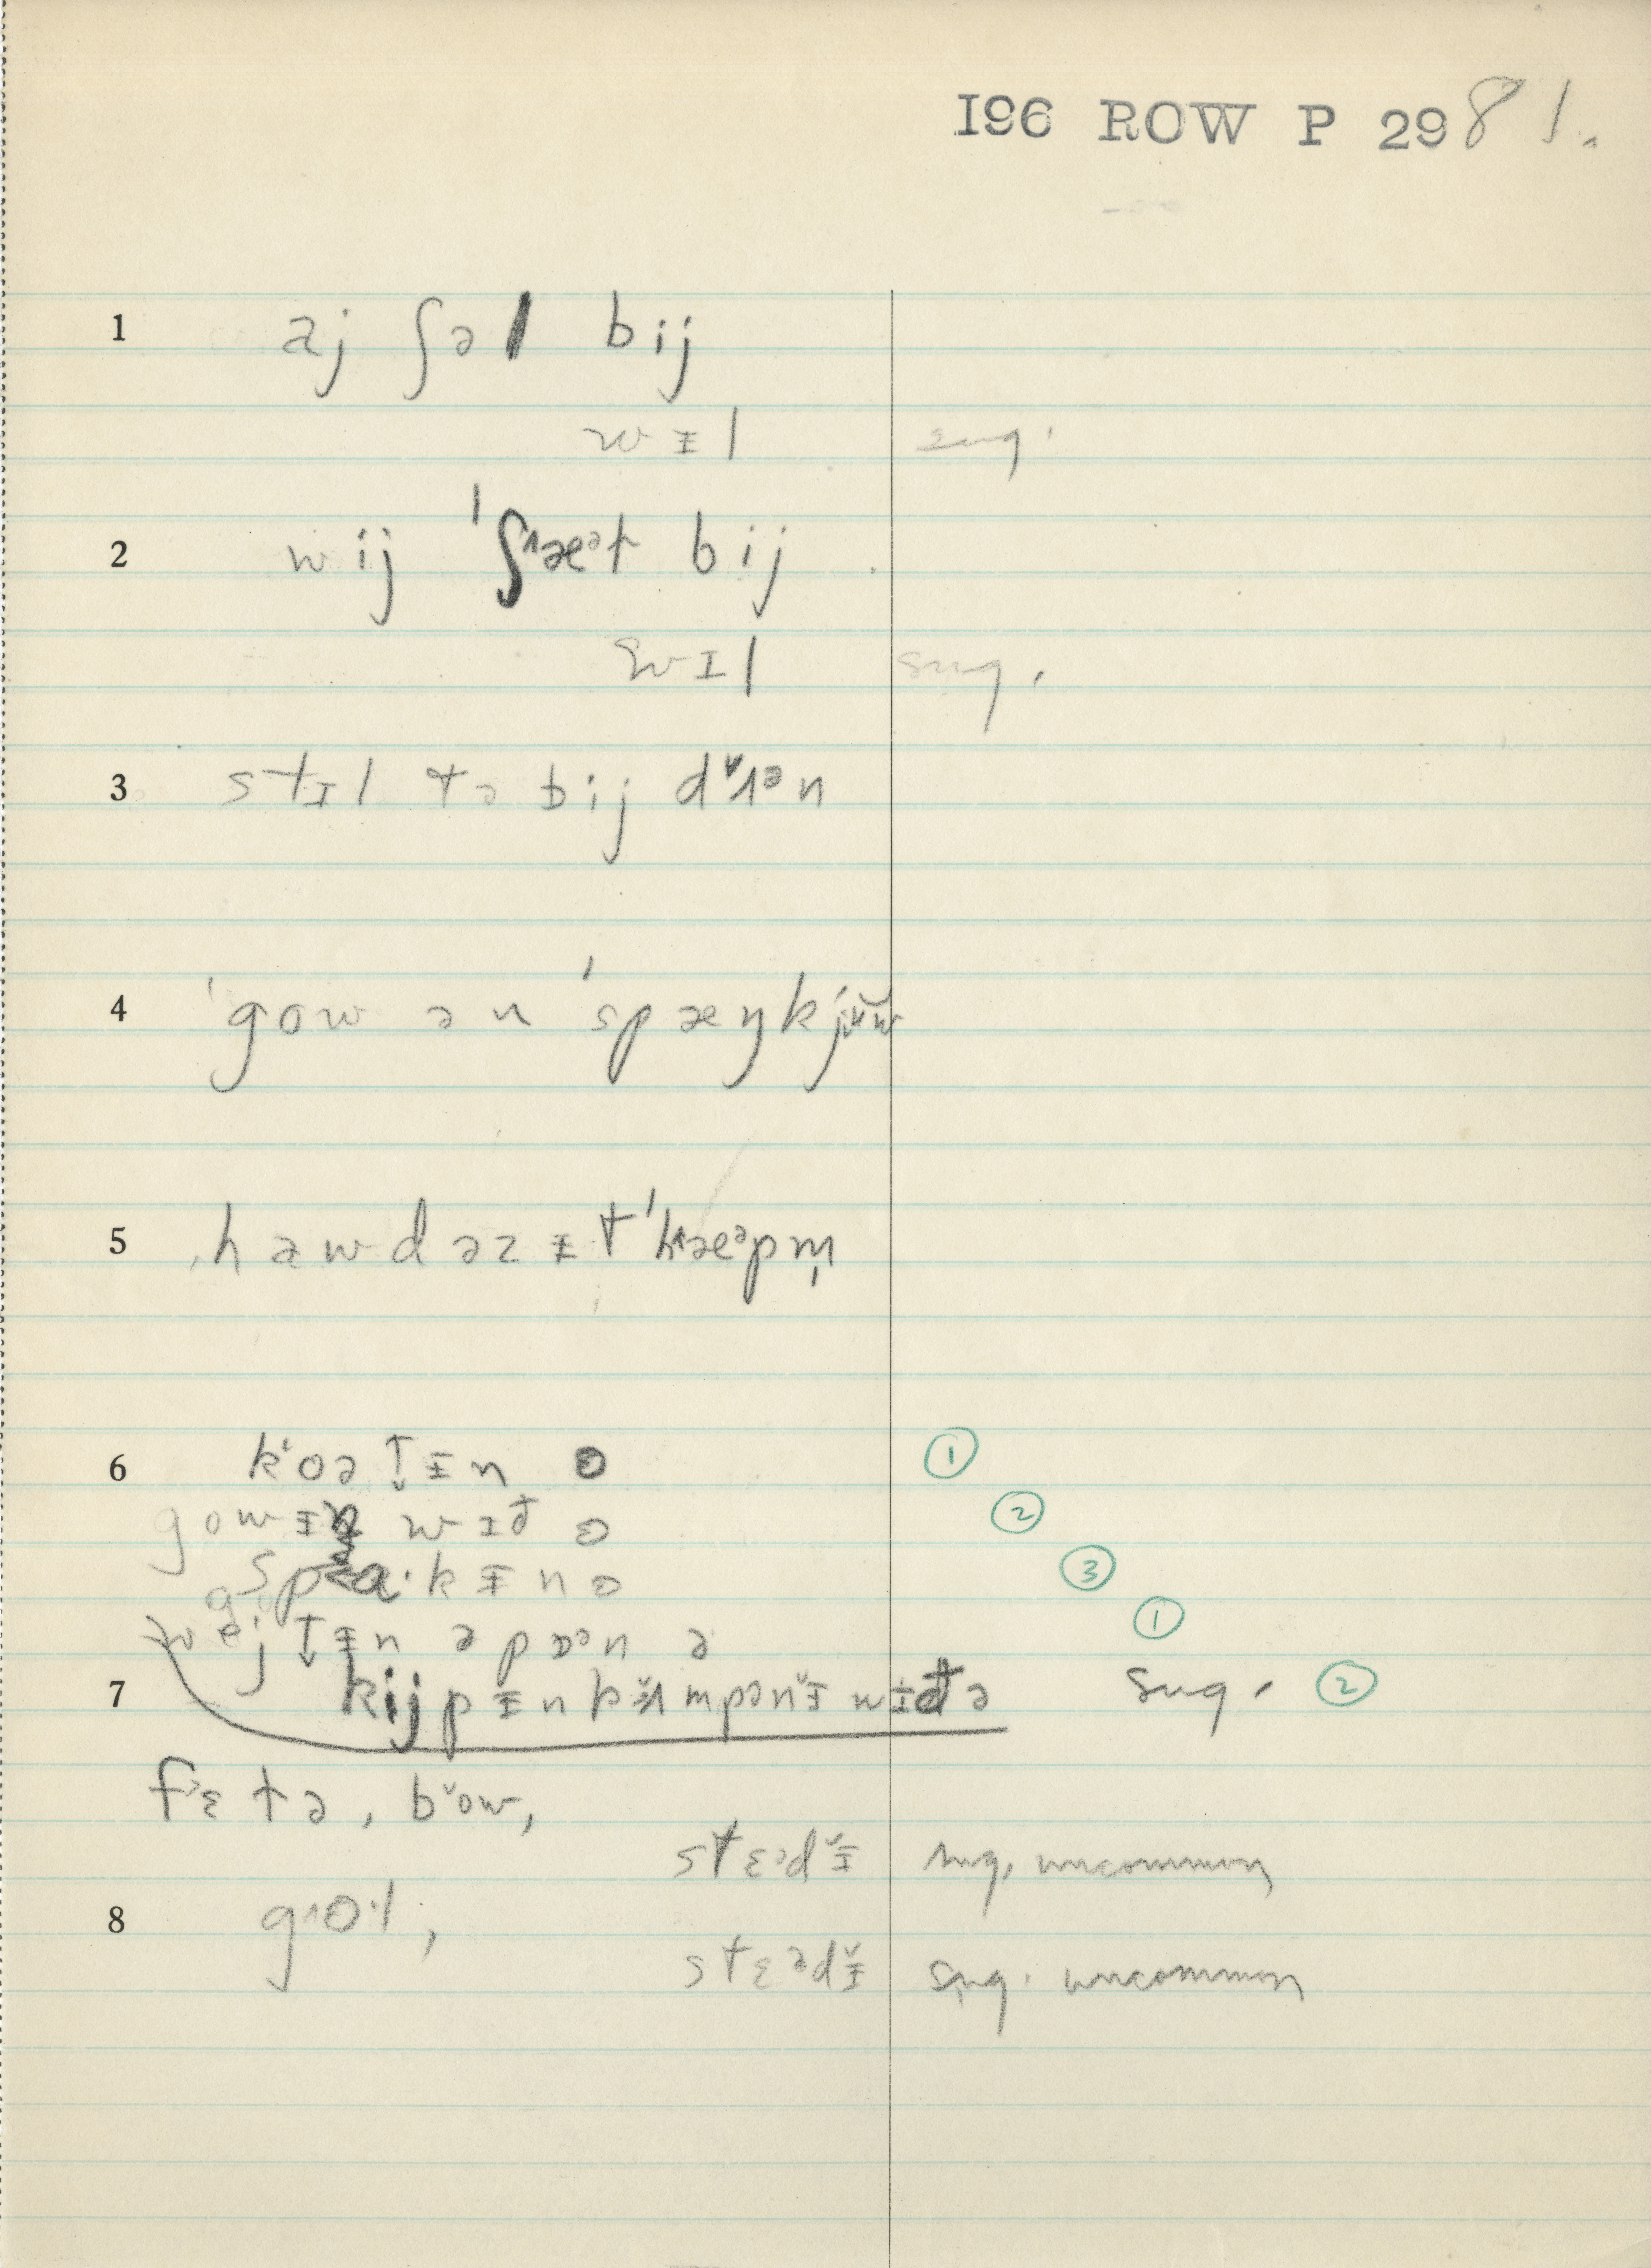 I96 ROW P 2981.
1 aj ʃəl bij
wᵻl sug.
2 wij ˈʃæət bij
wɪl sug.
3 stɪl tə bij dʌən
4 ˈgow ən ˈspæŋkjŭw
5 hawdəzᵻt ˈhæəpm̩
6 koətᵻn ə ①
gowᵻŋ wɪð ə ②
spa·kᵻn ə ③
wejtᵻn əpɒən ə ①
7 kijpᵻn kʌmpənᵻ wᵻðə sug. ②
fɛtə, bow,
stɛədᵻ sug. uncommon
8 gɜ·l,
stɛədᵻ sug. uncommon